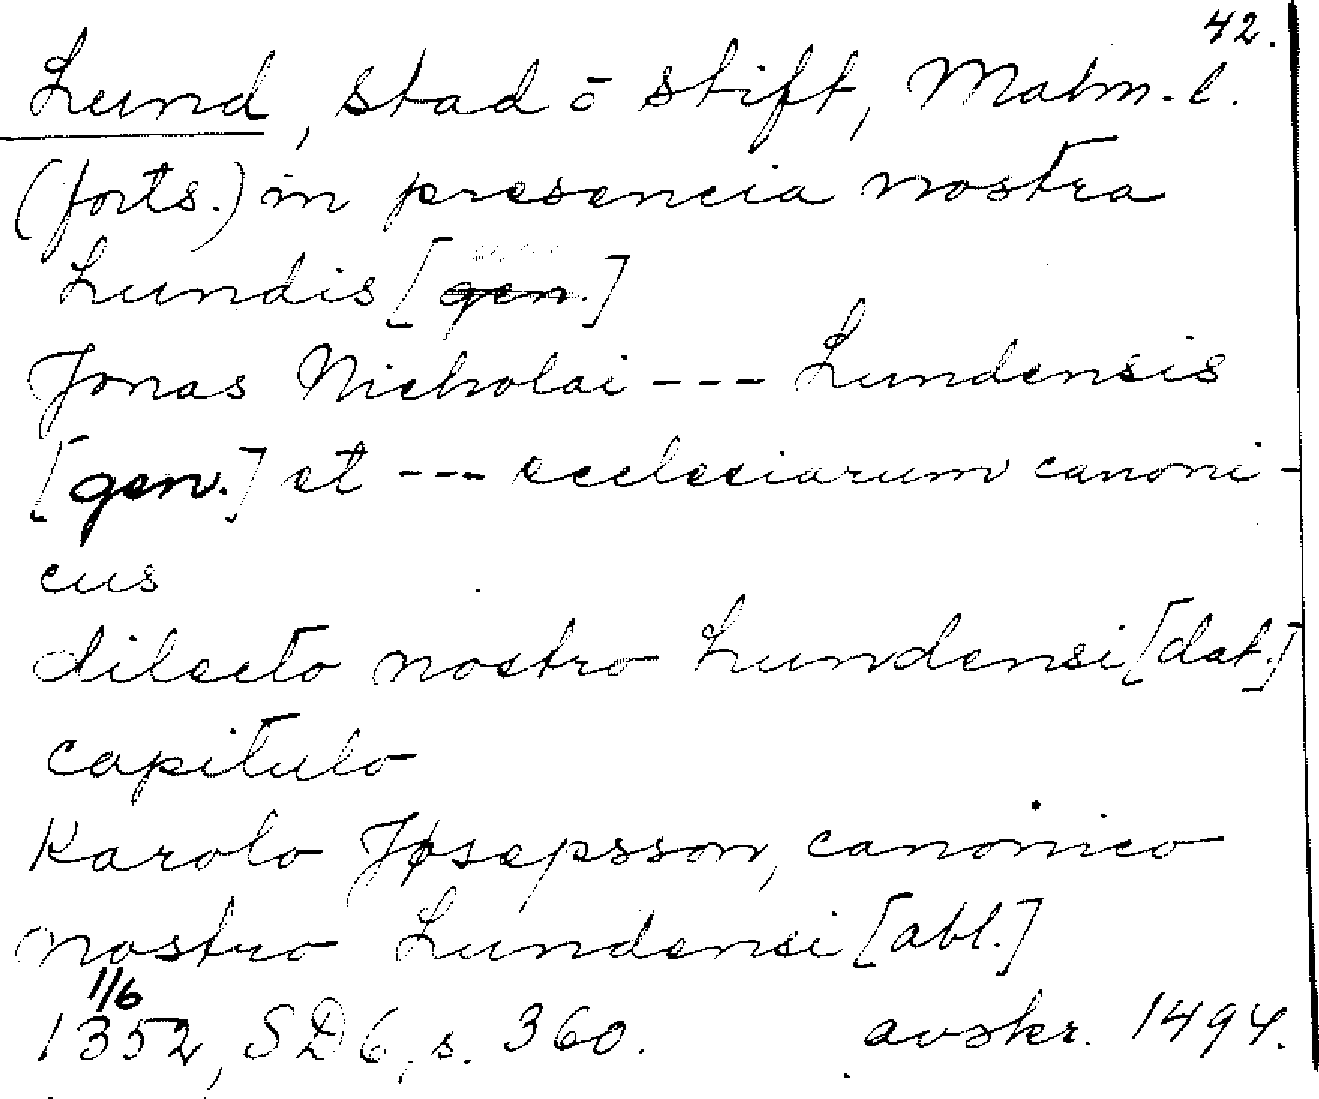 42.
Lund, stad o stift, Malm. l.
(forts.) in presencia nostra
Lundis [gen.]
Jonas Nicholai --- Lundensis
[gen.] et --- ecclesiarum canoni-
cus
dilecto nostro Lundensi [dat.]
capitulo
Karolo Jøsepsson, canonico
nostro Lundensi [abl.]
1/6
1352, SD 6, s. 360. avskr. 1494.